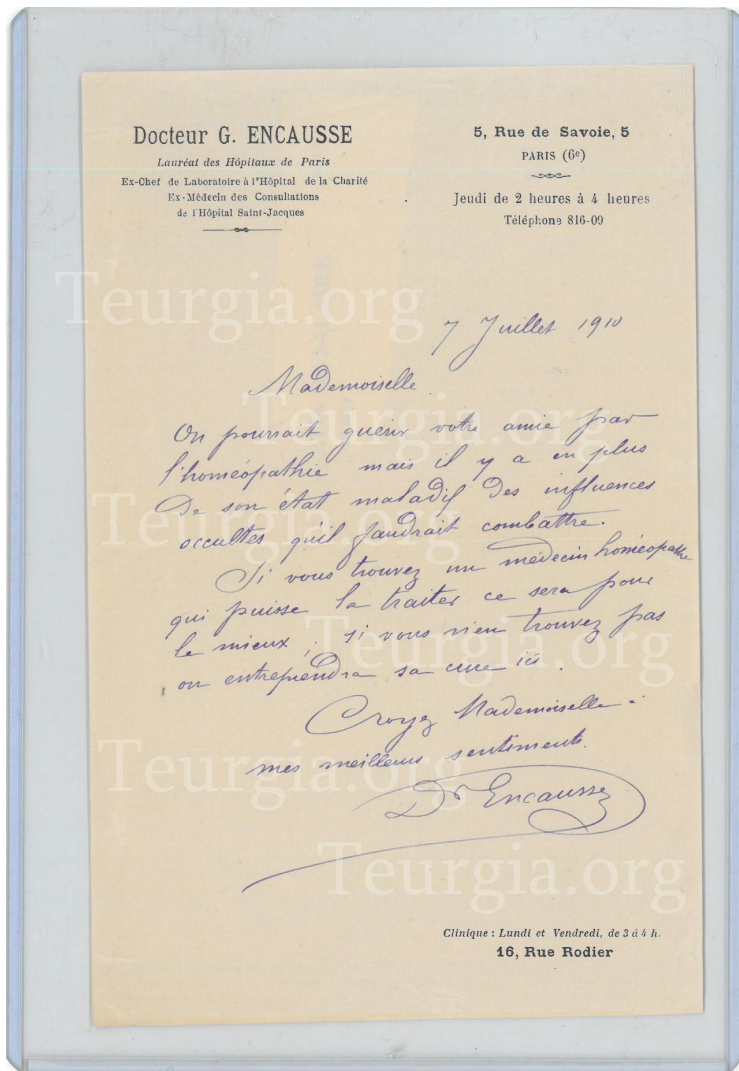 Docteur G. ENCAUSSE
Lauréat des Hôpitaux de Paris
Ex-Chef de Laboratoire à l'Hôpital de la Charité
Ex-Médecin des Consultations
de l'Hôpital Saint-Jacques
5, Rue de Savoie, 5
PARIS (6e)
Jeudi de 2 heures à 4 heures
Téléphone 816-09
7 Juillet 1910
Mademoiselle
On pourrait guérir votre amie par
l'homéopathie mais il y a en plus
De son état maladif Des influences
occultes qu'il faudrait combattre.
Si vous trouvez un médecin homéopathe
qui puisse la traiter ce sera pour
le mieux ; si vous n'en trouvez pas
on entreprendra sa cure ici.
Croyez Mademoiselle à
mes meilleurs sentiments.
Dr Encausse
Clinique : Lundi et Vendredi, de 3 à 4 h.
16, Rue Rodier
Teurgia.org
Teurgia.org
Teurgia.org
Teurgia.org
Teurgia.org
Teurgia.org